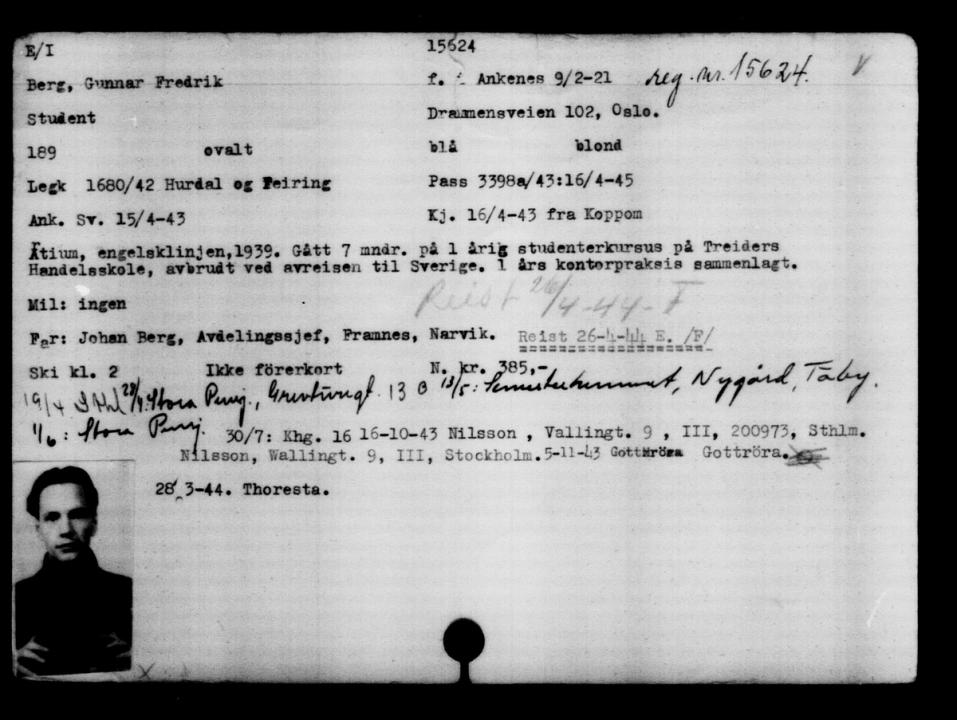 E/I 15624
Berg, Gunnar Fredrik f. Ankenes 9/2-21 reg. nr. 15624. V
Student Drammensveien 102, Oslo.
189 ovalt blå blond
Legk 1680/42 Hurdal og Feiring Pass 3398a/43:16/4-45
Ank. Sv. 15/4-43 Kj. 16/4-43 fra Koppom
Atium, engelsklinjen,1939. Gått 7 mndr. på 1 årig studenterkursus på Treiders
Handelsskole, avbrudt ved avreisen til Sverige. 1 års kontorpraksis sammenlagt.
Reist 26/4-44-F
Mil: ingen
Far: Johan Berg, Avdelingssjef, Framnes, Narvik. Reist 26-4-44 E. /F/
Ski kl. 2 Ikke förerkort N. kr. 385,-
19/4 28/4 Stora Pensj., 13 B 13/5: Nygård, Täby.
1/6: Stora Pensj. 30/7: Khg. 16 16-10-43 Nilsson , Vallingt. 9 , III, 200973, Sthlm.
Nilsson, Wallingt. 9, III, Stockholm. 5-11-43 Gottröra Gottröra.
28 3-44. Thoresta.